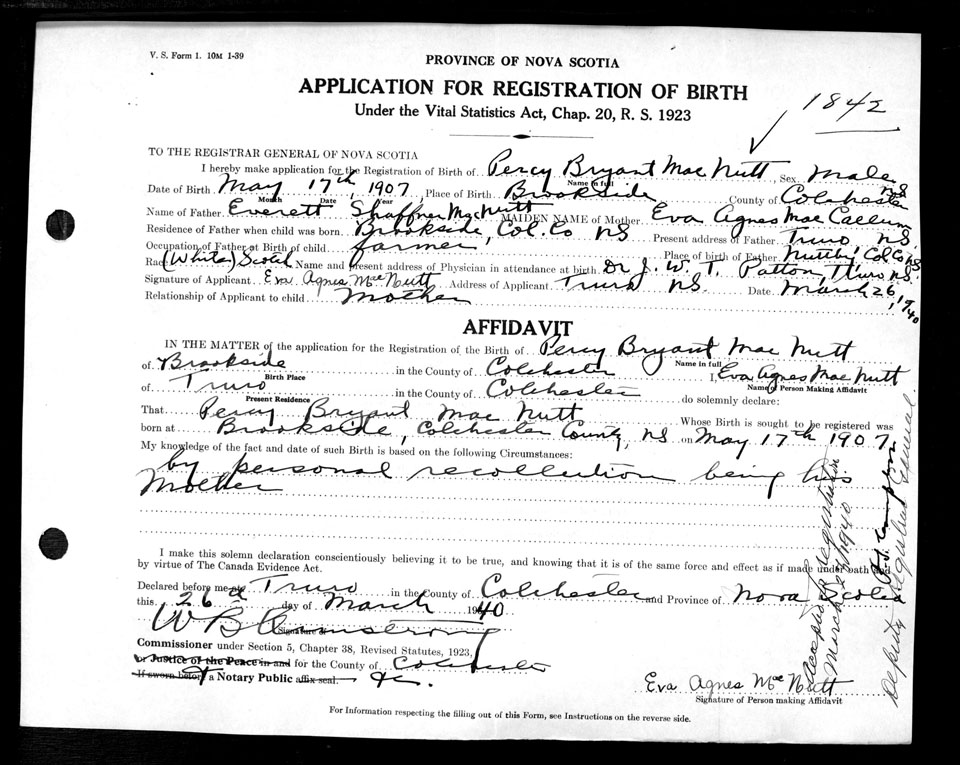 V. S. Form 1. 10M 1-39
PROVINCE OF NOVA SCOTIA
APPLICATION FOR REGISTRATION OF BIRTH
1842
Under the Vital Statistics Act, Chap. 20, R. S. 1923
TO THE REGISTRAR GENERAL OF NOVA SCOTIA
I hereby make application for the Registration of Birth of Percy Bryant Mac Nutt, Sex Male
Name in full
Date of Birth May 17th, 1907, Place of Birth Brookside County of Colchester NS
Month Date Year
Name of Father Everett Shaffner MacNutt MAIDEN NAME of Mother Eva Agnes Mac Callum
Residence of Father when child was born Brookside, Col. Co NS Present address of Father Truro, NS.
Occupation of Father at Birth of child farmer Place of birth of Father Nuttby, Col Co, NS.
Race (White) Scotch Name and present address of Physician in attendance at birth Dr J. W. T. Patton, Truro NS.
Signature of Applicant Eva Agnes McNutt Address of Applicant Truro NS. Date March 26, 1940
Relationship of Applicant to child Mother
AFFIDAVIT
IN THE MATTER of the application for the Registration of the Birth of Percy Bryant Mac Nutt
Name in full
of Brookside in the County of Colchester I, Eva Agnes Mac Nutt
Birth Place Name of Person Making Affidavit
of Truro in the County of Colchester do solemnly declare:
Present Residence
That Percy Bryant Mac Nutt Whose Birth is sought to be registered was
born at Brookside, Colchester County, NS on May 17th 1907.
My knowledge of the fact and date of such Birth is based on the following Circumstances:
by personal recollection being his
Mother
I make this solemn declaration conscientiously believing it to be true, and knowing that it is of the same force and effect as if made under oath and
by virtue of The Canada Evidence Act.
Declared before me at Truro in the County of Colchester and Province of Nova Scotia
this 26th day of March 1940
W B Armstrong
Signature
Commissioner under Section 5, Chapter 38, Revised Statutes, 1923,
or Justice of the Peace in and for the County of Colchester
If sworn before a Notary Public affix seal. &c.
Eva Agnes McNutt
Signature of Person making Affidavit
For Information respecting the filling out of this Form, see Instructions on the reverse side.
Accepted for registration
March 27/1940
Deputy Registrar General